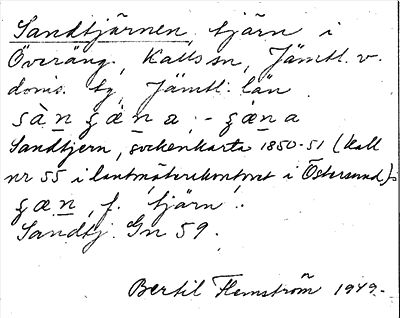 Sandtjärnen, tjärn i
Överäng, Kalls sn, Jämtl. v.
doms. tg, Jämtl. län.
sàn ʒæ̀na, -ʒæna
Sandtjern, sockenkarta 1850-51 (Kall
nr 55 i lantmäterikontoret i Östersund).
ʒæn, f. 'tjärn'.
Sandtj. Gn 59.
Bertil Flemström 1949.